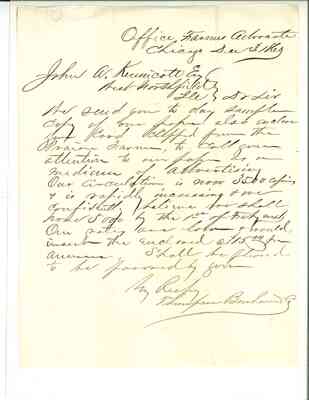 Office, Farmer Advocate
Chicago Dec
John A. Kennicott Esq
West Northfield
Ills Dr Sir
We send you to day sample
copy of our paper also enclose
clipped from the
Prairie Farmer, to call your
attention to our paper as a
medium of advertising
Our circulation is now 3500 copies
& is rapidly increasing we
confidently believe we shall
have 5000 by the 1st of Feby next
Our rates are low & would
insert the enclosed at 15 per
annum Shall be pleased
to be favored by you
Respy
Thompson